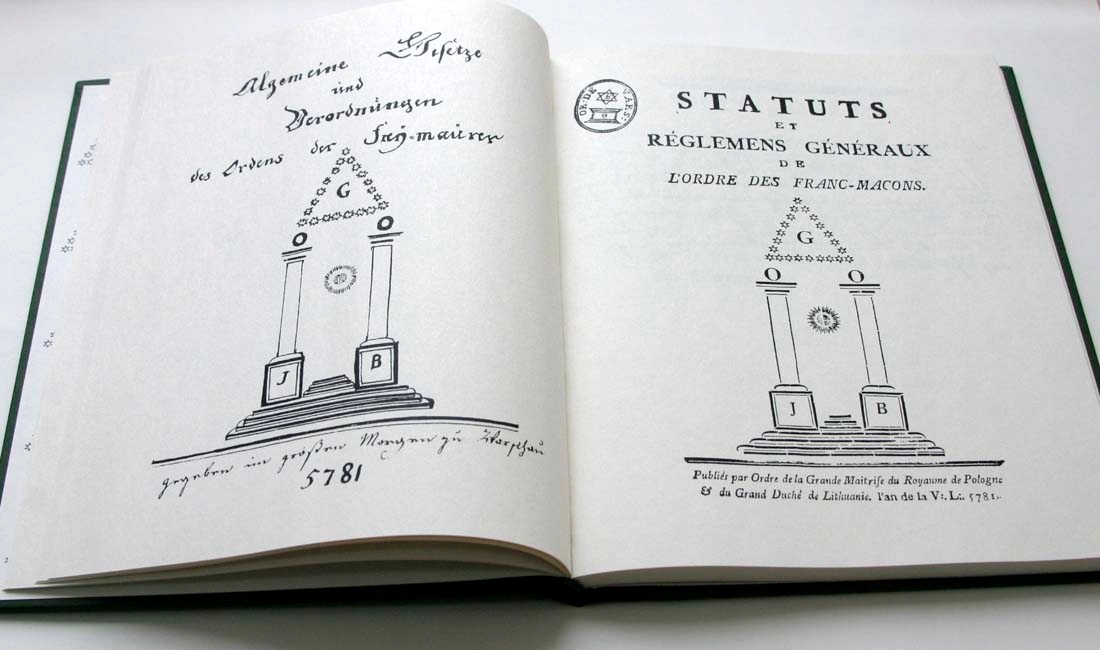 Algemeine Gesetze
und
Verordnungen
des Ordens der Freÿ-maürer
G
J B
gegeben im großen Morgen zu Warschau
5781
OR·DE VARS:
STATUTS
ET
RÉGLEMENS GÉNÉRAUX
DE
L'ORDRE DES FRANC-MACONS.
G
J B
Publiés par Ordre de la Grande Maitrise du Royaume de Pologne
& du Grand Duché de Lithuanie, l'an de la V:. L:. 5781.